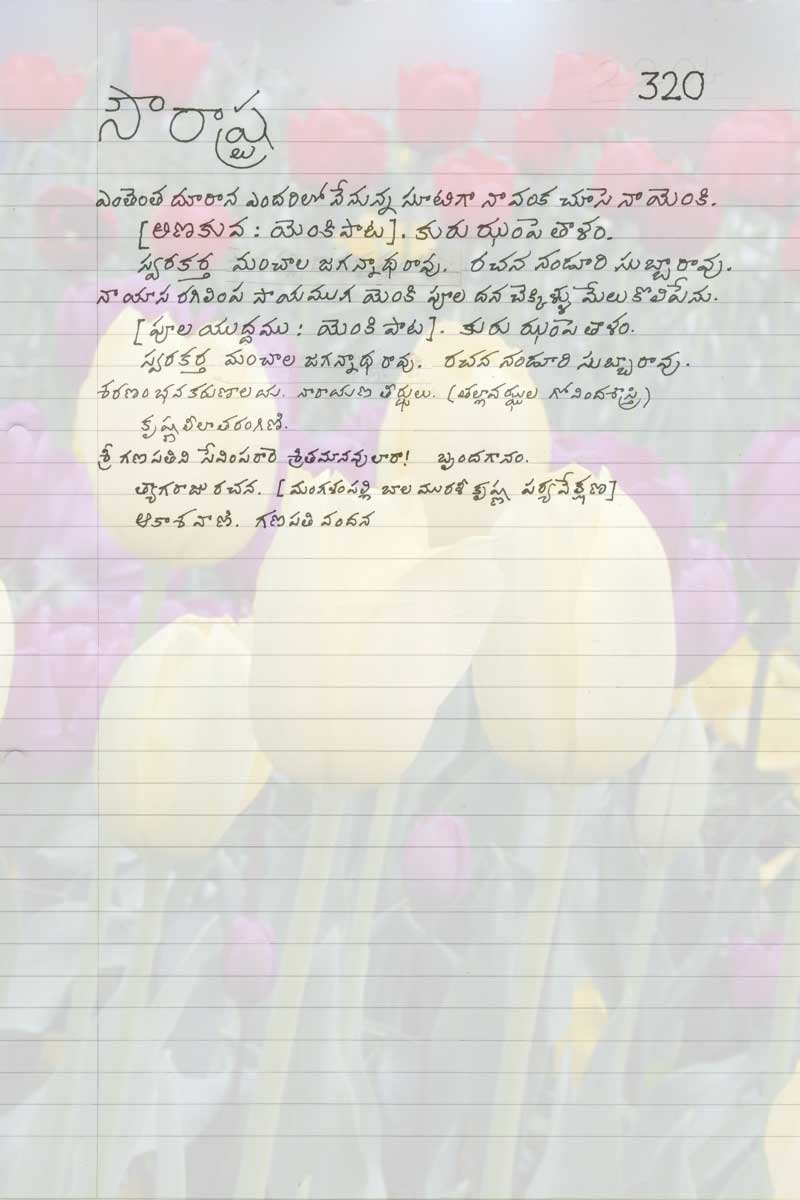 320
సౌరాష్ట్ర
ఎంతెంత దూరాన ఎందరిలో నేనున్న సూటిగా నా వంక చూసె నా యెంకి.
[ఆణకువ : యెంకి పాట]. కురు ఝంపె తాళం.
స్వరకర్త మంచాల జగన్నాథ రావు. రచన నండూరి సుబ్బారావు.
నా యాస రగిలింప సాయముగ యెంకి పూల దన చెక్కిళ్ళు మేలుకొలిపేను.
[పూల యుద్ధము : యెంకి పాట]. కురు ఝంపె తాళం.
స్వరకర్త మంచాల జగన్నాథ రావు. రచన నండూరి సుబ్బారావు.
శరణం భవ కరుణాలయ. నారాయణ తీర్థులు. (తల్లావఝ్ఝుల గోవిందశాస్త్రి)
కృష్ణ లీలా తరంగిణి.
శ్రీ గణపతిని సేవింపరారె శ్రితమానవులారా! బృందగానం.
త్యాగరాజు రచన. [మంగళంపల్లి బాల మురళీ కృష్ణ పర్యవేక్షణ]
ఆకాశవాణి. గణపతి వందన